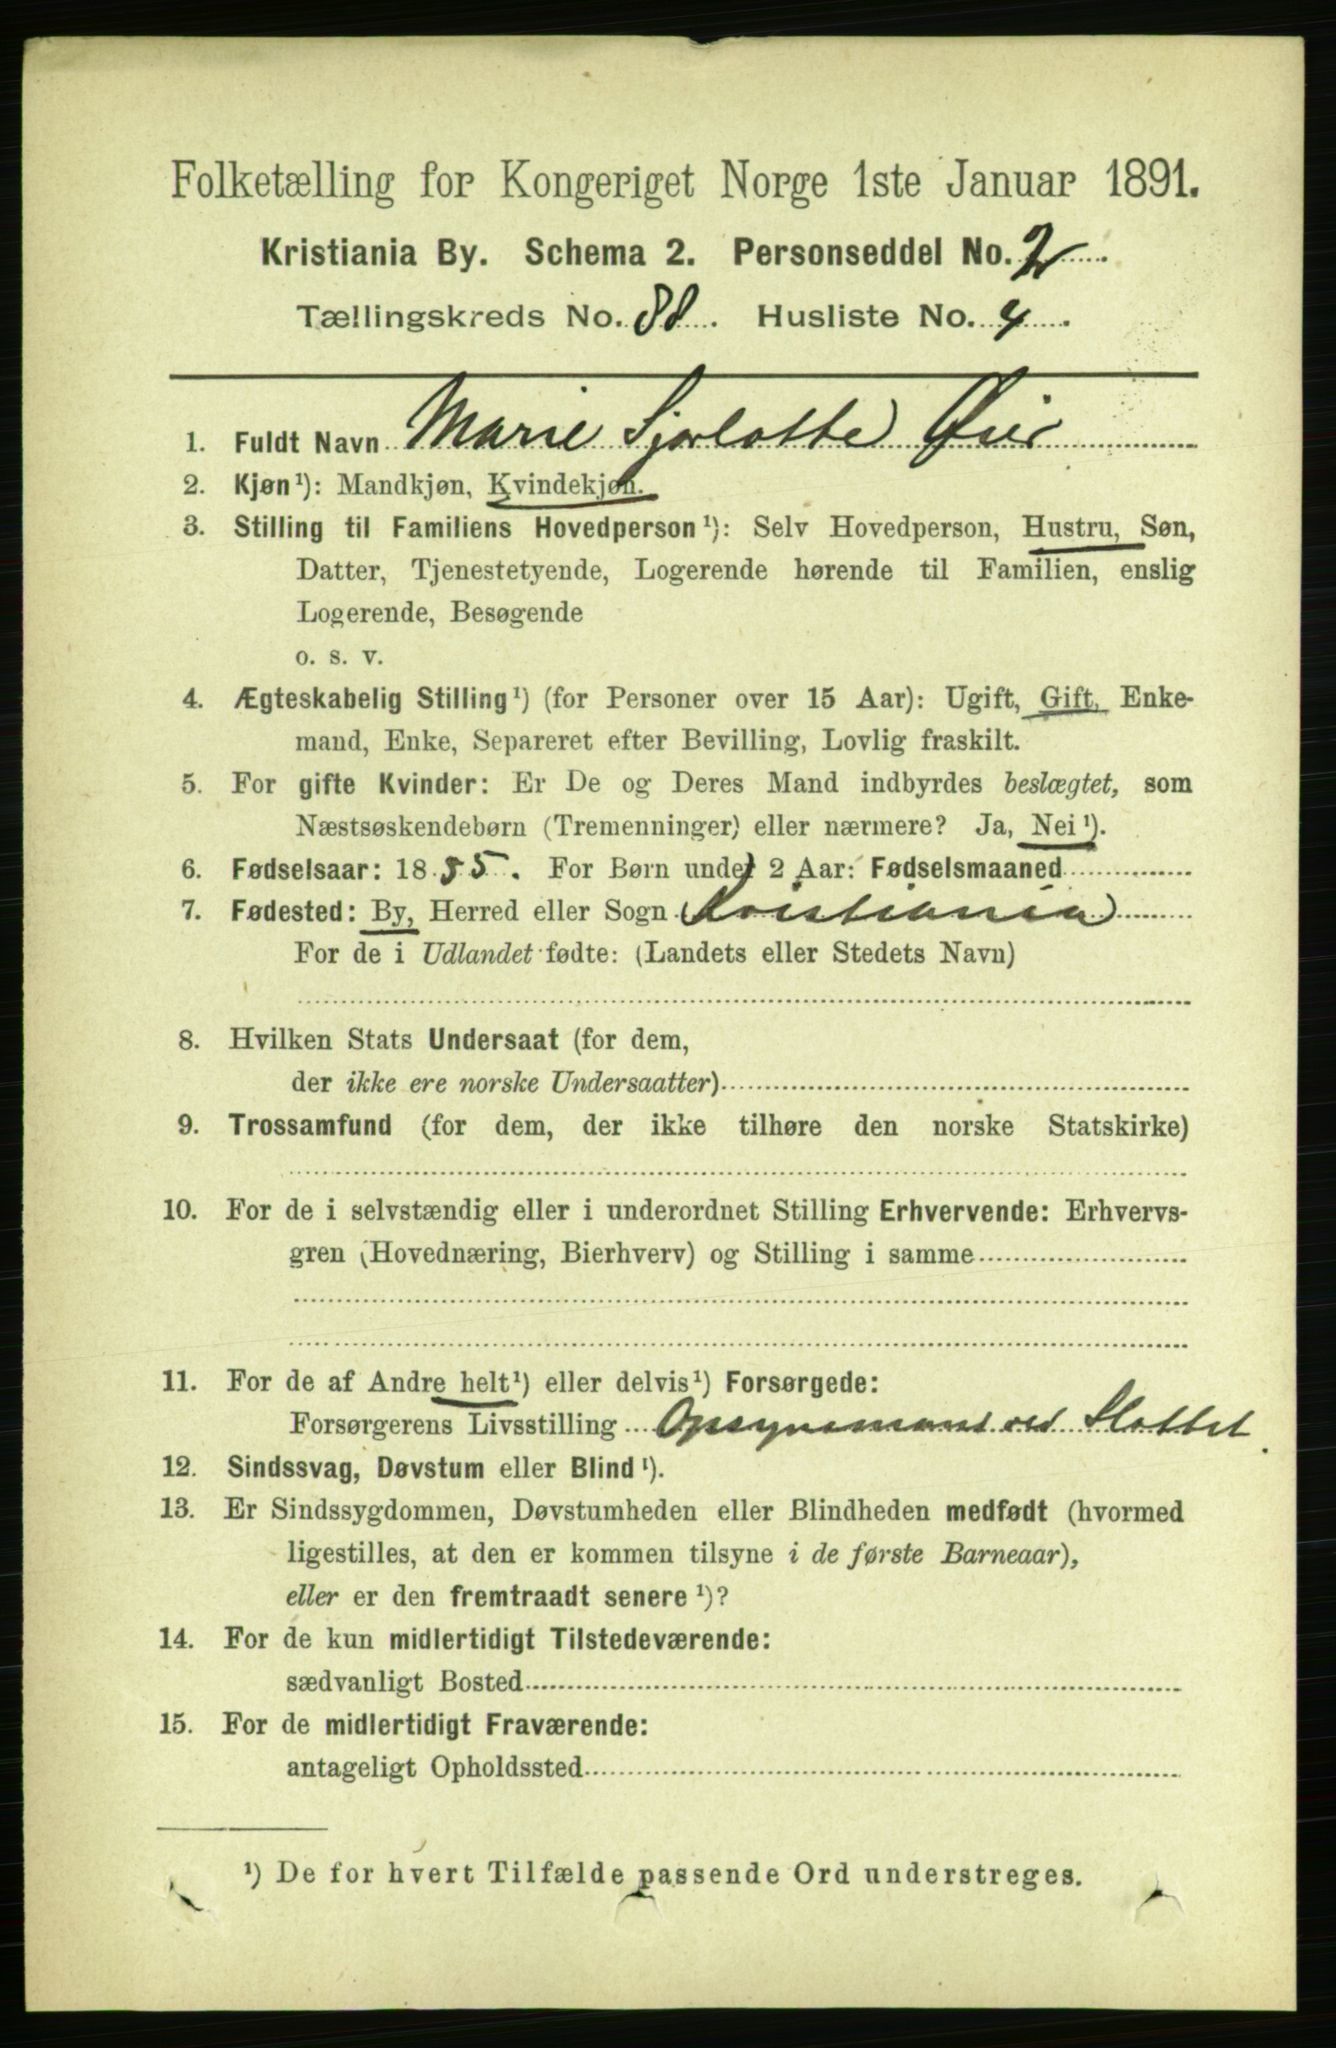 Folketælling for Kongeriget Norge 1ste Januar 1891.
Kristiania By. Schema 2. Personseddel No. 2
Tællingskreds No. 88. Husliste No. 4.
1. Fuldt Navn Marie Sjarlotte
2. Kjøn¹): Mandkjøn, Kvindekjøn.
3. Stilling til Familiens Hovedperson¹): Selv Hovedperson, Hustru, Søn,
Datter, Tjenestetyende, Logerende hørende til Familien, enslig
Logerende, Besøgende
o. s. v.
4. Ægteskabelig Stilling¹) (for Personer over 15 Aar): Ugift, Gift, Enke-
mand, Enke, Separeret efter Bevilling, Lovlig fraskilt.
5. For gifte Kvinder: Er De og Deres Mand indbyrdes beslægtet, som
Næstsøskendebørn (Tremenninger) eller nærmere? Ja, Nei¹).
6. Fødselsaar: 1855. For Børn under 2 Aar: Fødselsmaaned
7. Fødested: By, Herred eller Sogn Kristiania
For de i Udlandet fødte: (Landets eller Stedets Navn)
8. Hvilken Stats Undersaat (for dem,
der ikke ere norske Undersaatter)
9. Trossamfund (for dem, der ikke tilhøre den norske Statskirke)
10. For de i selvstændig eller i underordnet Stilling Erhvervende: Erhvervs-
gren (Hovednæring, Bierhverv) og Stilling i samme
11. For de af Andre helt¹) eller delvis¹) Forsørgede:
Forsørgerens Livsstilling Opsynsmand ved Slottet.
12. Sindssvag, Døvstum eller Blind¹).
13. Er Sindssygdommen, Døvstumheden eller Blindheden medfødt (hvormed
ligestilles, at den er kommen tilsyne i de første Barneaar),
eller er den fremtraadt senere¹)?
14. For de kun midlertidigt Tilstedeværende:
sædvanligt Bosted
15. For de midlertidigt Fraværende:
antageligt Opholdssted
¹) De for hvert Tilfælde passende Ord understreges.